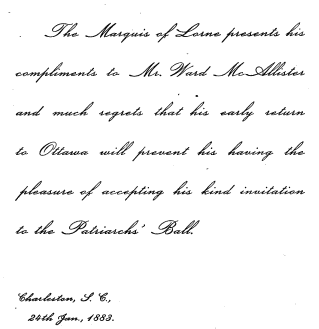 The Marquis of Lorne presents his
compliments to Mr. Ward McAllister
and much regrets that his early return
to Ottawa will prevent his having the
pleasure of accepting his kind invitation
to the Patriarchs' Ball.
Charleston, S. C.,
24th Jan., 1883.